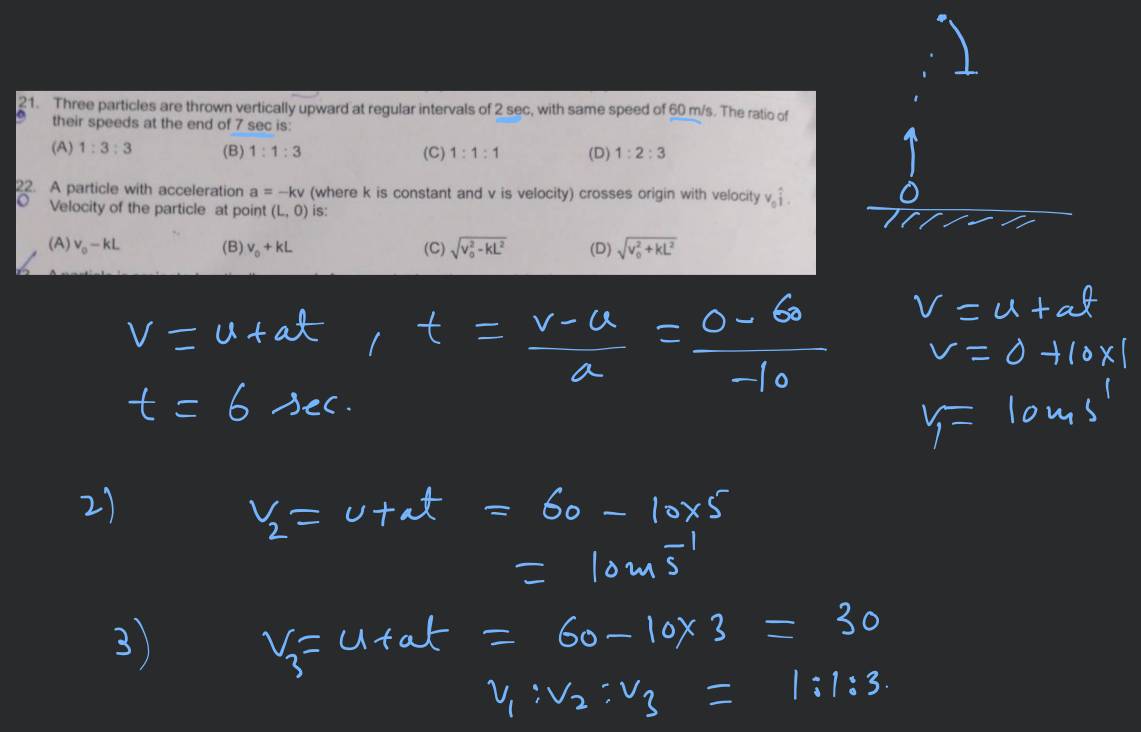 21. Three particles are thrown vertically upward at regular intervals of 2 sec, with same speed of 60 m/s. The ratio of
their speeds at the end of 7 sec is:
(A) 1 : 3 : 3 (B) 1 : 1 : 3 (C) 1 : 1 : 1 (D) 1 : 2 : 3
22. A particle with acceleration a = –kv (where k is constant and v is velocity) crosses origin with velocity v₀î.
Velocity of the particle at point (L, 0) is:
(A) v₀ – kL (B) v₀ + kL (C) √(v₀² - kL²) (D) √(v₀² + kL²)
v = u + at , t = (v - u)/a = (0 - 60)/(-10)
t = 6 sec.
v = u + at
v = 0 + 10 x 1
v₁ = 10 m s¹
2) v₂ = u + at = 60 - 10 x 5
= 10 m s⁻¹
3) v₃ = u + at = 60 - 10 x 3 = 30
v₁ : v₂ : v₃ = 1 : 1 : 3.